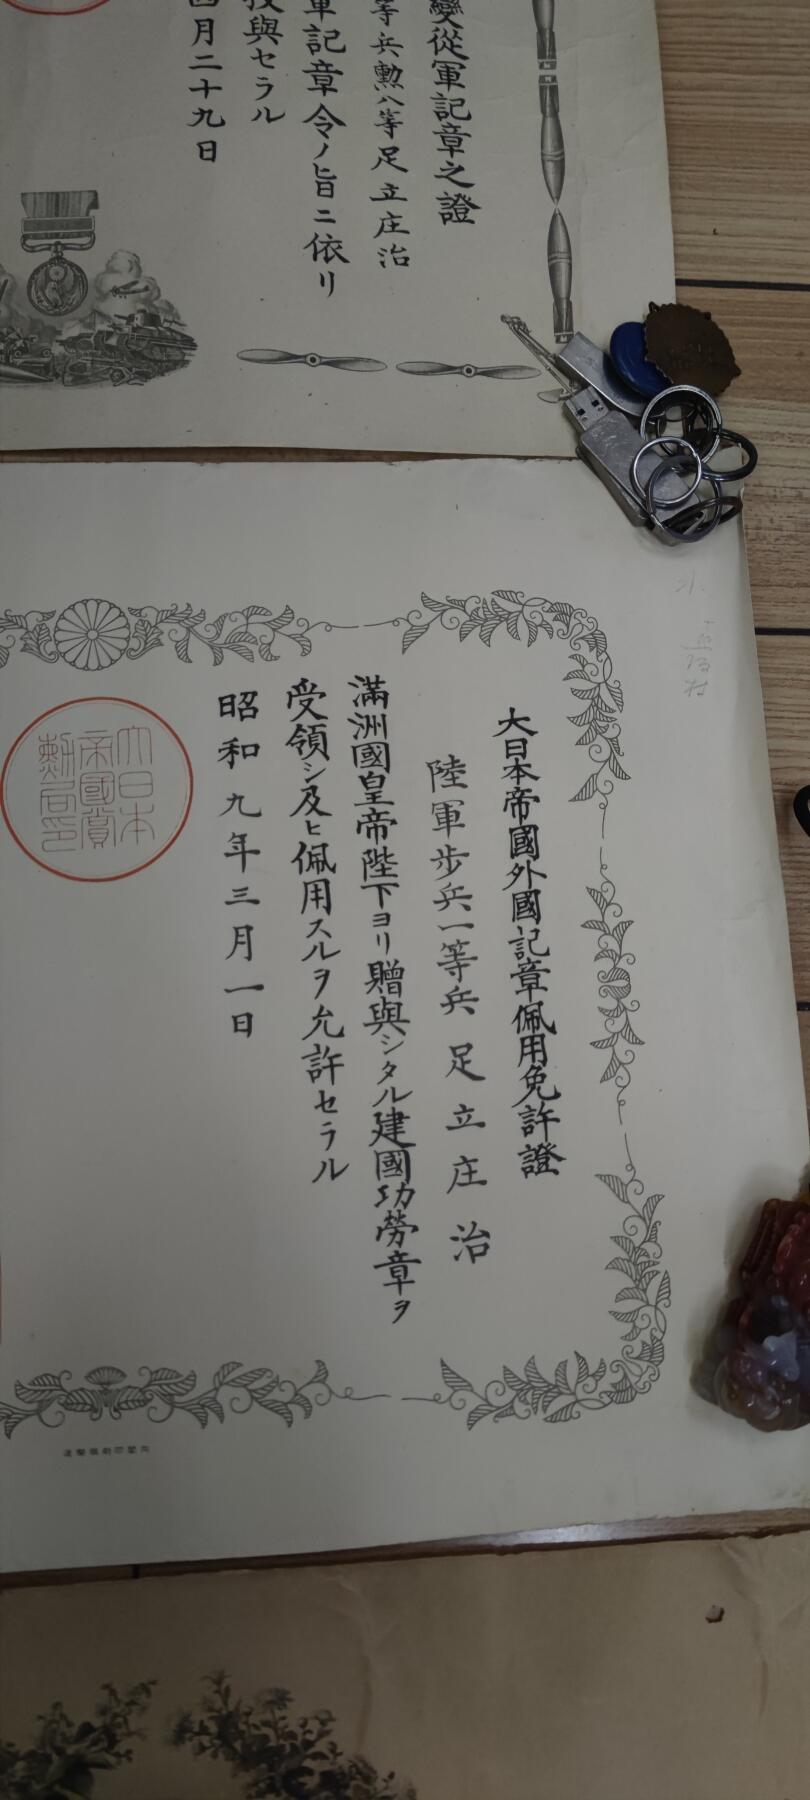 變從軍記章之證
等兵勲八等足立庄治
軍記章令ノ旨ニ依リ
授與セラル
四月二十九日
大日本帝國外國記章佩用免許證
陸軍歩兵一等兵 足立庄治
滿洲國皇帝陛下ヨリ贈與シタル建國功勞章ヲ
受領シ及ヒ佩用スルヲ允許セラル
昭和九年三月一日
大日本
帝國賞
勲局印
内閣印刷局製造